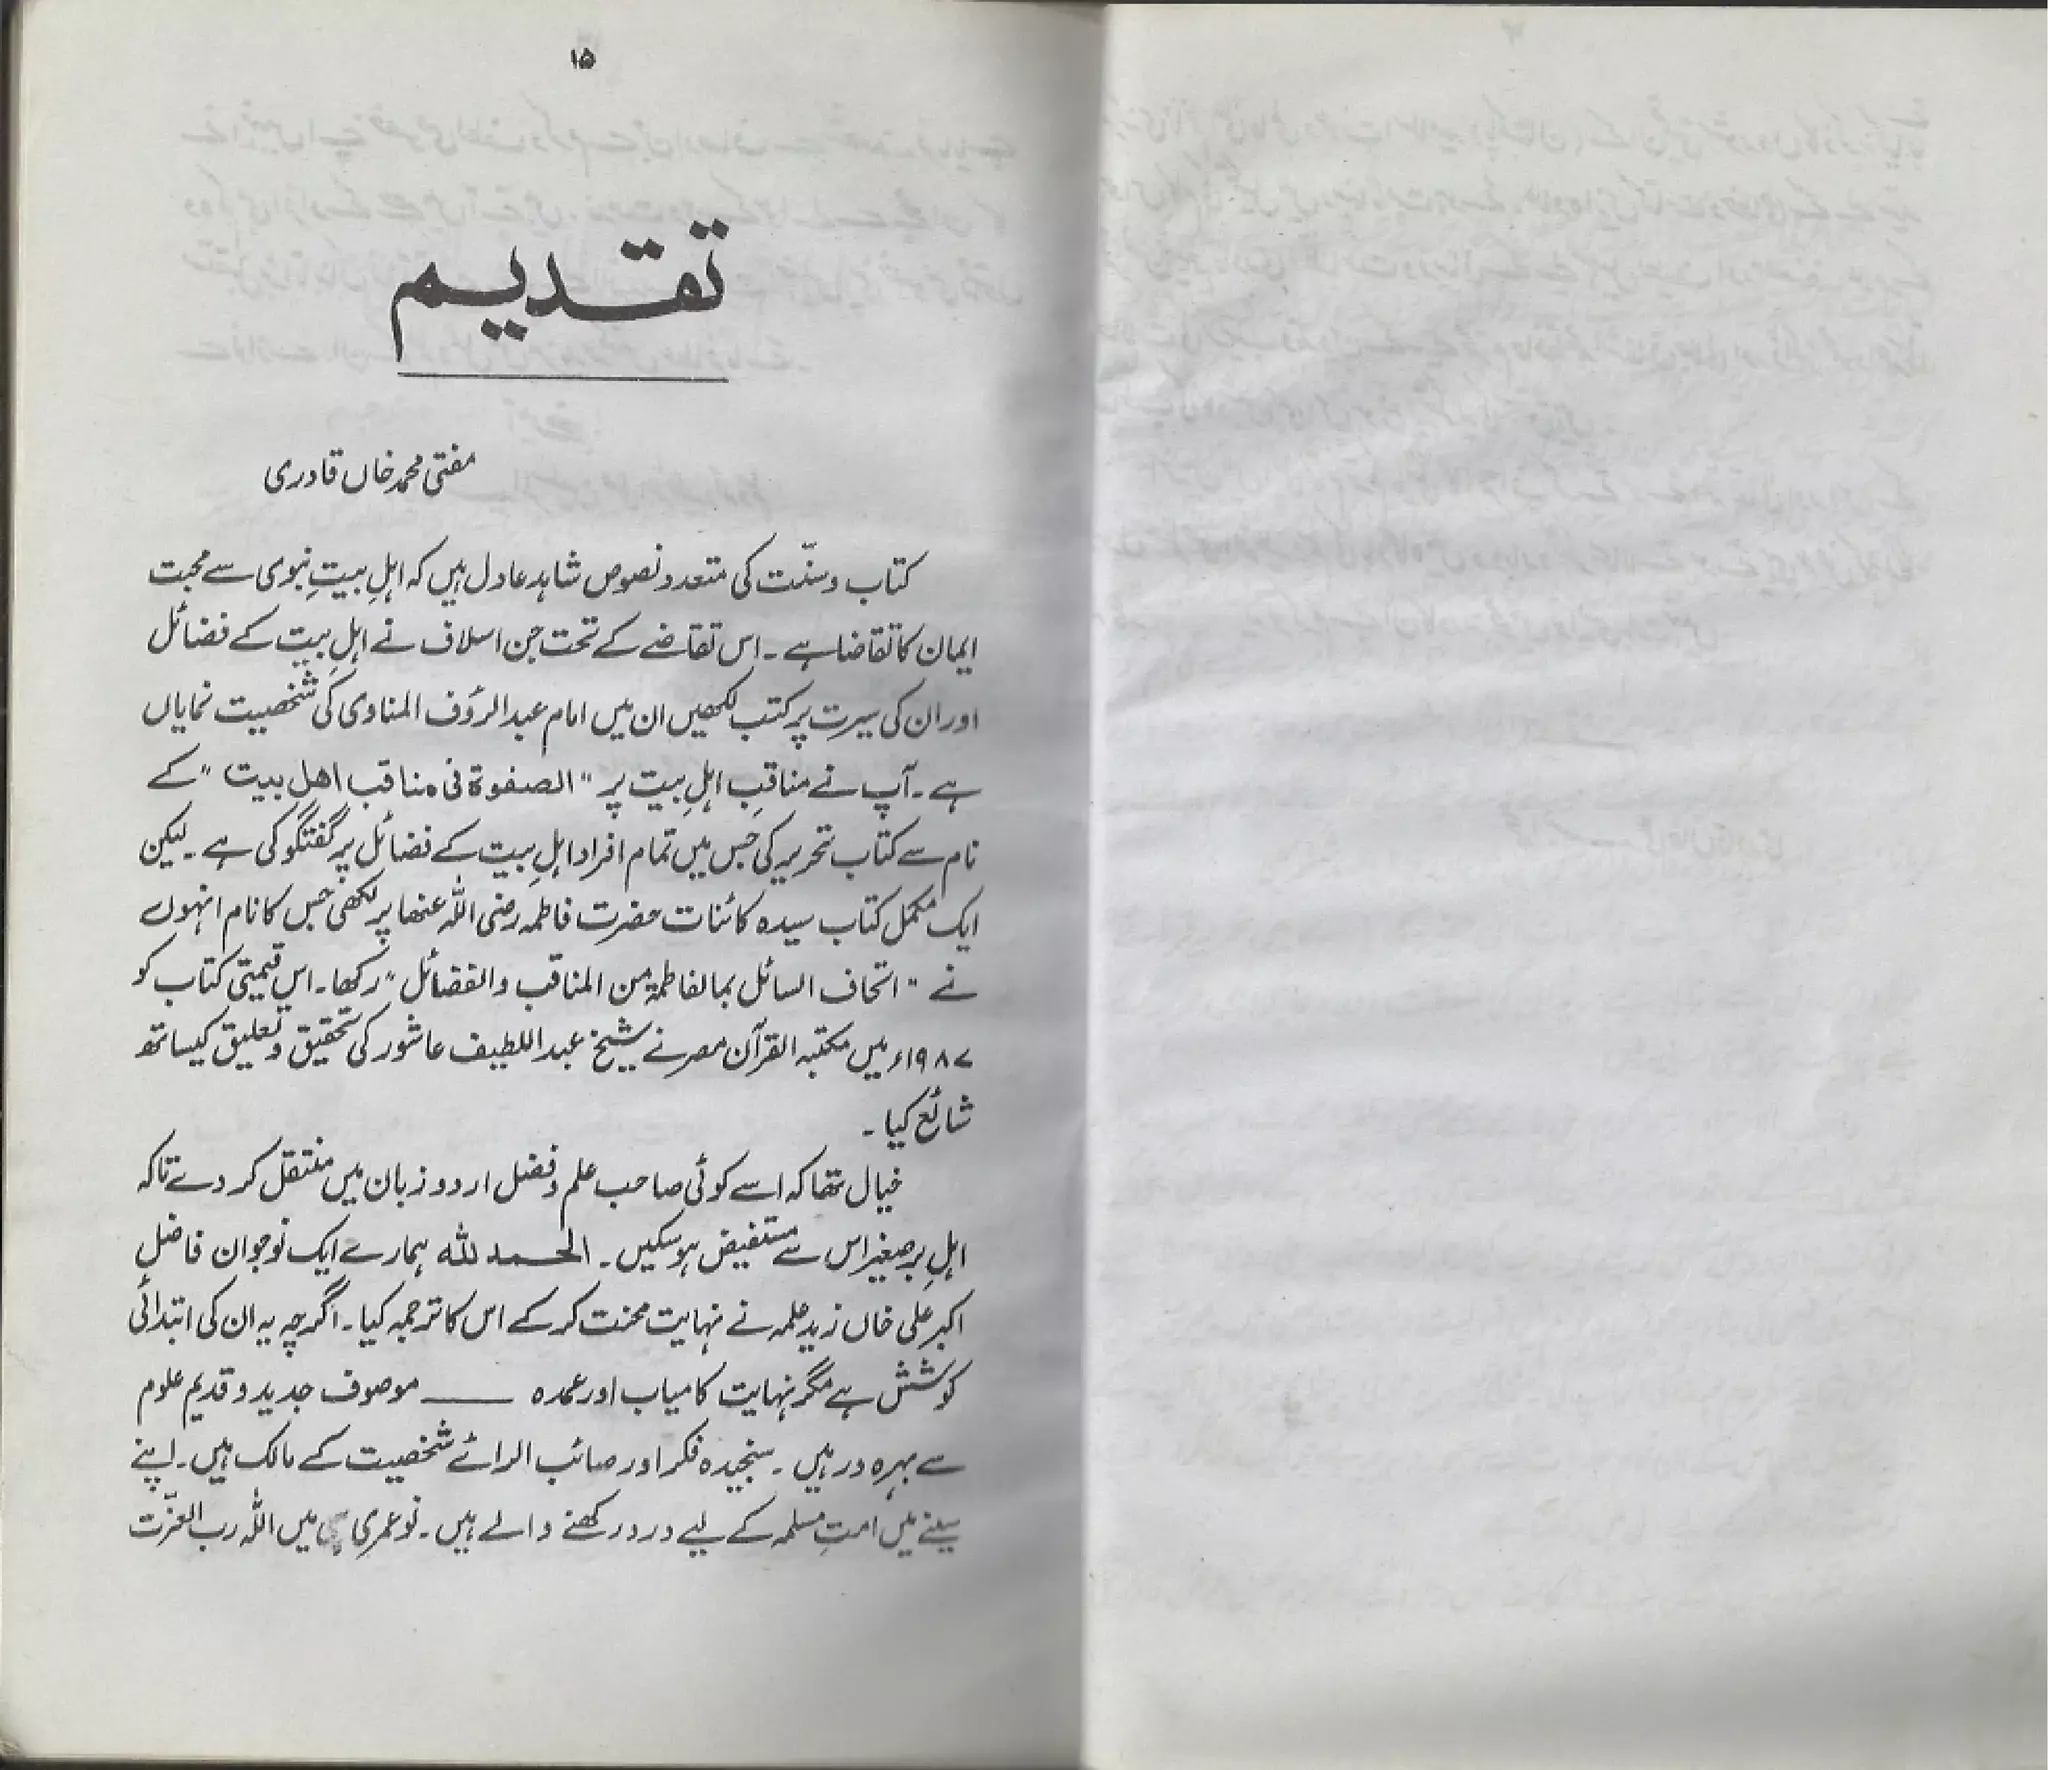 ۱۵
تقدیم
مفتی محمد خاں قادری
کتاب و سنّت کی متعدد نصوص شاہد عادل ہیں کہ اہلِ بیتِ نبوی سے محبت
ایمان کا تقاضا ہے ۔ اس تقاضے کے تحت جن اسلاف نے اہلِ بیت کے فضائل
اور ان کی سیرت پر کتب لکھیں ان میں امام عبد الرؤف المناوی کی شخصیت نمایاں
ہے ۔ آپ نے مناقبِ اہلِ بیت پر "الصفوۃ فی مناقب اھل بیت" کے
نام سے کتاب تحریر کی جس میں تمام افراد اہلِ بیت کے فضائل پر گفتگو کی ہے ۔ لیکن
ایک مکمل کتاب سیدہ کائنات حضرت فاطمہ رضی اللہ عنھا پر لکھی جس کا نام انہوں
نے "اتحاف السائل بما لفاطمۃ من المناقب والفضائل" رکھا ۔ اس قیمتی کتاب کو
۱۹۸۷ء میں مکتبہ القرآن مصر نے شیخ عبد اللطیف عاشور کی تحقیق و تعلیق کیساتھ
شائع کیا ۔
خیال تھا کہ اسے کوئی صاحب علم و فضل اردو زبان میں منتقل کر دے تاکہ
اہلِ برصغیر اس سے مستفیض ہو سکیں ۔ الحمد للہ ہمارے ایک نوجوان فاضل
اکبر علی خاں زید علمہ نے نہایت محنت کر کے اس کا ترجمہ کیا ۔ اگرچہ یہ ان کی ابتدائی
کوشش ہے مگر نہایت کامیاب اور عمدہ ـــــــ موصوف جدید و قدیم علوم
سے بہرہ ور ہیں ۔ سنجیدہ فکر اور صائب الرائے شخصیت کے مالک ہیں ۔ اپنے
سینے میں امتِ مسلمہ کے لیے درد رکھنے والے ہیں ۔ نو عمری ہی میں اللہ رب العزّت